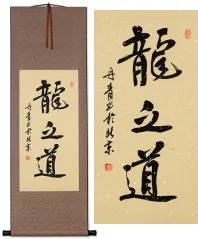 龍之道
丹青書於北京
龍之道
丹青書於北京